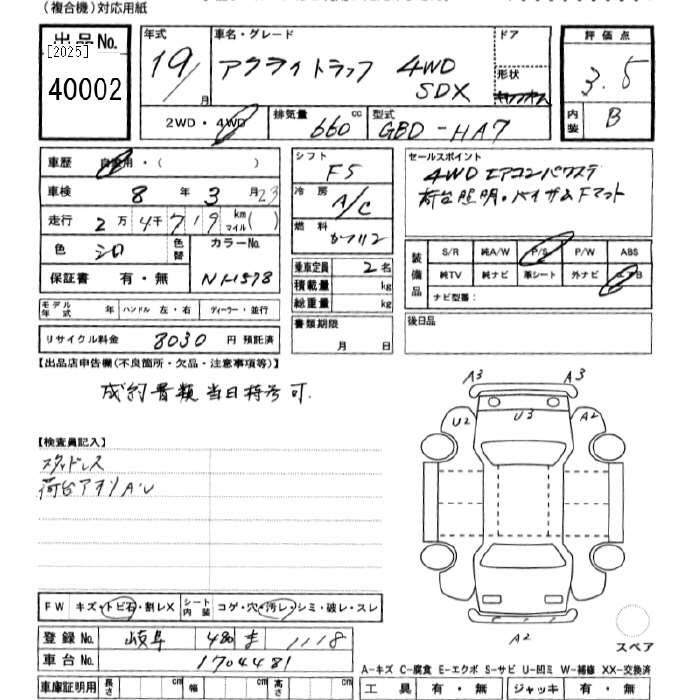 (複合機)対応用紙
出品No.
[2025]
40002
年式
19
月
車名・グレード
アクティトラック 4WD
SDX
ドア
形状
評価点
3.5
内装
B
2WD・4WD
排気量
660 cc
型式
GBD-HA7
車歴
自家用・( )
車検
8 年 3 月 23
走行
2万 4千 719 km マイル( )
色
シロ
色替
カラーNo.
NH578
保証書 有・無
シフト
F5
冷房
A/C
燃料
乗車定員 2名
積載量 kg
総重量 kg
書類期限
月 日
セールスポイント
4WD エアコン パワステ
荷台照明・バイザ&Fマット
装備品
S/R 純A/W P/S P/W ABS
純TV 純ナビ 革シート 外ナビ エアB
ナビ型番:
後日品
モデル年式 年 ハンドル 左・右 ディーラー・並行
リサイクル料金 8030 円 預託済
【出品店申告欄(不良箇所・欠品・注意事項等)】
成約書類当日持参可.
【検査員記入】
スタッドレス
荷台アオリA・U
FW キズ・トビ石・割レX
シート内装 コゲ・穴・汚レ・シミ・破レ・スレ
登録No. 岐阜 480 1118
車台No. 1704481
車庫証明用 長さ cm 幅 cm 高さ cm
A3 A3
U2 U3 A2
A2
スペア
A-キズ C-腐食 E-エクボ S-サビ U-凹ミ W-補修 XX-交換済
工具 有・無 ジャッキ 有・無